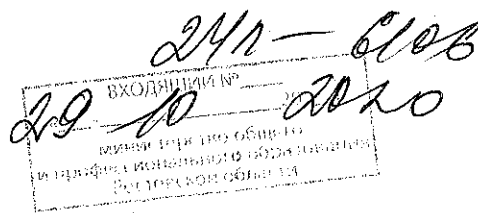 24/1 — 6106
ВХОДЯЩИЙ №
29 10 2020
министерство общего
и профессионального образования
Ростовской области